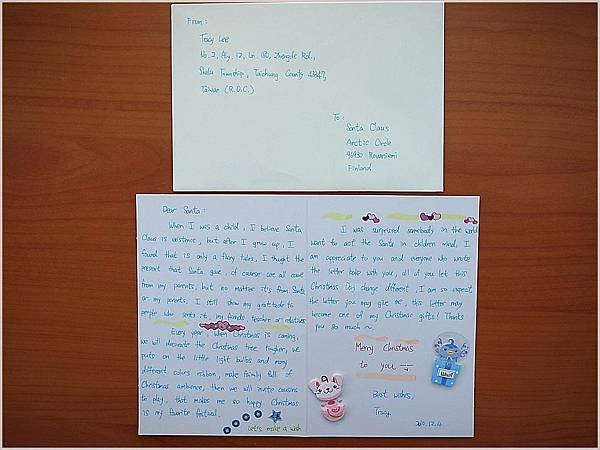 From :
Tracy Lee
No. 2, Aly. 12, Ln. Zhongde Rd.,
Shalu Township, Taichung County 43347,
Taiwan (R.O.C.)
To :
Santa Claus
Arctic Circle
96930 Rovaniemi
Finland
Dear Santa :
When I was a child, I believe Santa
Claus is existence, but after I grow up, I
found that is only a fairy tales, I thought the
present that Santa gave, of course are all come
from my parents, but no matter it's from Santa
or my parents, I still show my gratitude to
people who sents it, my friends, teacher or relatives.
Every year, when Christmas is coming,
we will decorate the Christmas tree together, we
puts on the little light bulbs and many
different colors ribbon, make family full of
Christmas ambience, then we will invite cousins
to play, that makes me so happy. Christmas
is my favorite festival.
Let's make a wish
I was surprised somebody in the world
want to act the Santa in children mind, I
am appreciate to you and everyone who wrote
the letter back with you, all of you let this
Christmas Day change different, I am so expect
the letter you may give me, this letter may
become one of my Christmas gifts! Thanks
you so much ~
Merry Christmas
to you
Best wishes,
Tracy
2010.12.4